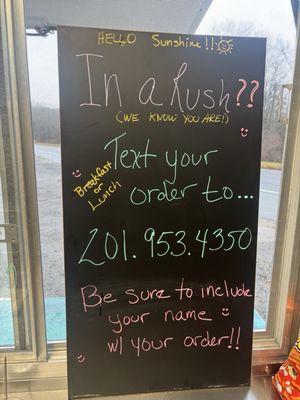 HELLO Sunshine!!!
In a Rush??
(WE KNOW YOU ARE!)
Text your
Breakfast
or
Lunch
order to...
201.953.4350
Be sure to include
your name
w/ your order!!